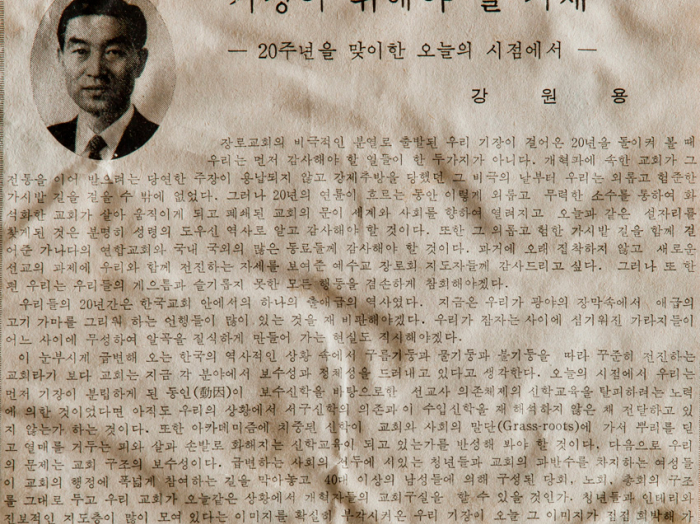 — 20주년을 맞이한 오늘의 시점에서 —
강 원 용
장로교회의 비극적인 분열로 출발된 우리 기장이 걸어온 20년을 돌이켜 볼 때
우리는 먼저 감사해야 할 일들이 한 두가지가 아니다. 개혁파에 속한 교회가 그
전통을 이어 받으려는 당연한 주장이 용납되지 않고 강제추방을 당했던 그 비극의 날부터 우리는 외롭고 험준한
가시밭 길을 걸을 수 밖에 없었다. 그러나 20년의 연륜이 흐르는 동안 이렇게 외롭고 무력한 소수를 통하여 화
석화한 교회가 살아 움직이게 되고 폐쇄된 교회의 문이 세계와 사회를 향하여 열려지고 오늘과 같은 설자리를
찾게된 것은 분명히 성령의 도우신 역사로 알고 감사해야 할 것이다. 또한 그 외롭고 험한 가시밭 길을 함께 걸
어준 가나다의 연합교회와 국내 국외의 많은 동료들께 감사해야 할 것이다. 과거에 오래 집착하지 않고 새로운
선교의 과제에 우리와 함께 전진하는 자세를 보여준 예수교 장로회 지도자들께 감사드리고 싶다. 그러나 또 한
편 우리는 우리들의 게으름과 슬기롭지 못한 모든 행동을 겸손하게 참회해야겠다.
우리들의 20년간은 한국교회 안에서의 하나의 출애급의 역사였다. 지금은 우리가 광야의 장막속에서 애급의
고기 가마를 그리워 하는 언행들이 많이 있는 것을 재 비판해야겠다. 우리가 잠자는 사이에 심기워진 가라지들이
어느 사이에 무성하여 알곡을 질식하게 만들어 가는 현실도 직시해야겠다.
이 눈부시게 급변해 오는 한국의 역사적인 상황 속에서 구름기둥과 불기둥을 따라 꾸준히 전진하는
교회라기 보다 교회는 지금 각 분야에서 보수성과 정체성을 드러내고 있다고 생각한다. 오늘의 시점에서 우리는
먼저 기장이 분립하게 된 동인(動因)이 보수신학을 바탕으로한 선교사 의존체제의 신학교육을 탈피하려는 노력
에 의할 것이었다면 아직도 우리의 상황에서 서구신학의 의존과 이 수입신학을 재 해석하지 않은 채 전달하고 있
지 않는가 하는 것이다. 또한 아카데미즘에 치중된 신학이 교회와 사회의 말단(Grass-roots)에 가서 뿌리를 딛
고 열매를 거두는 피와 살과 손발로 화해지는 신학교육이 되고 있는가를 반성해 봐야 할 것이다. 다음으로 우리
의 문제는 교회 구조의 보수성이다. 급변하는 사회의 선두에 서있는 청년들과 교회의 과반수를 차지하는 여성들
이 교회의 행정에 폭넓게 참여하는 길을 막아놓고 40대 이상의 남성들에 의해 구성된 당회, 노회, 총회의 구조
를 그대로 두고 우리 교회가 오늘같은 상황에서 개혁자들의 교회구실을 할 수 있을 것인가. 청년들과 인테리와
진보적인 지도층이 많이 모여 있다는 이미지를 확실히 부각시켜온 우리 기장이 오늘 그 이미지가 점점 희박해 가